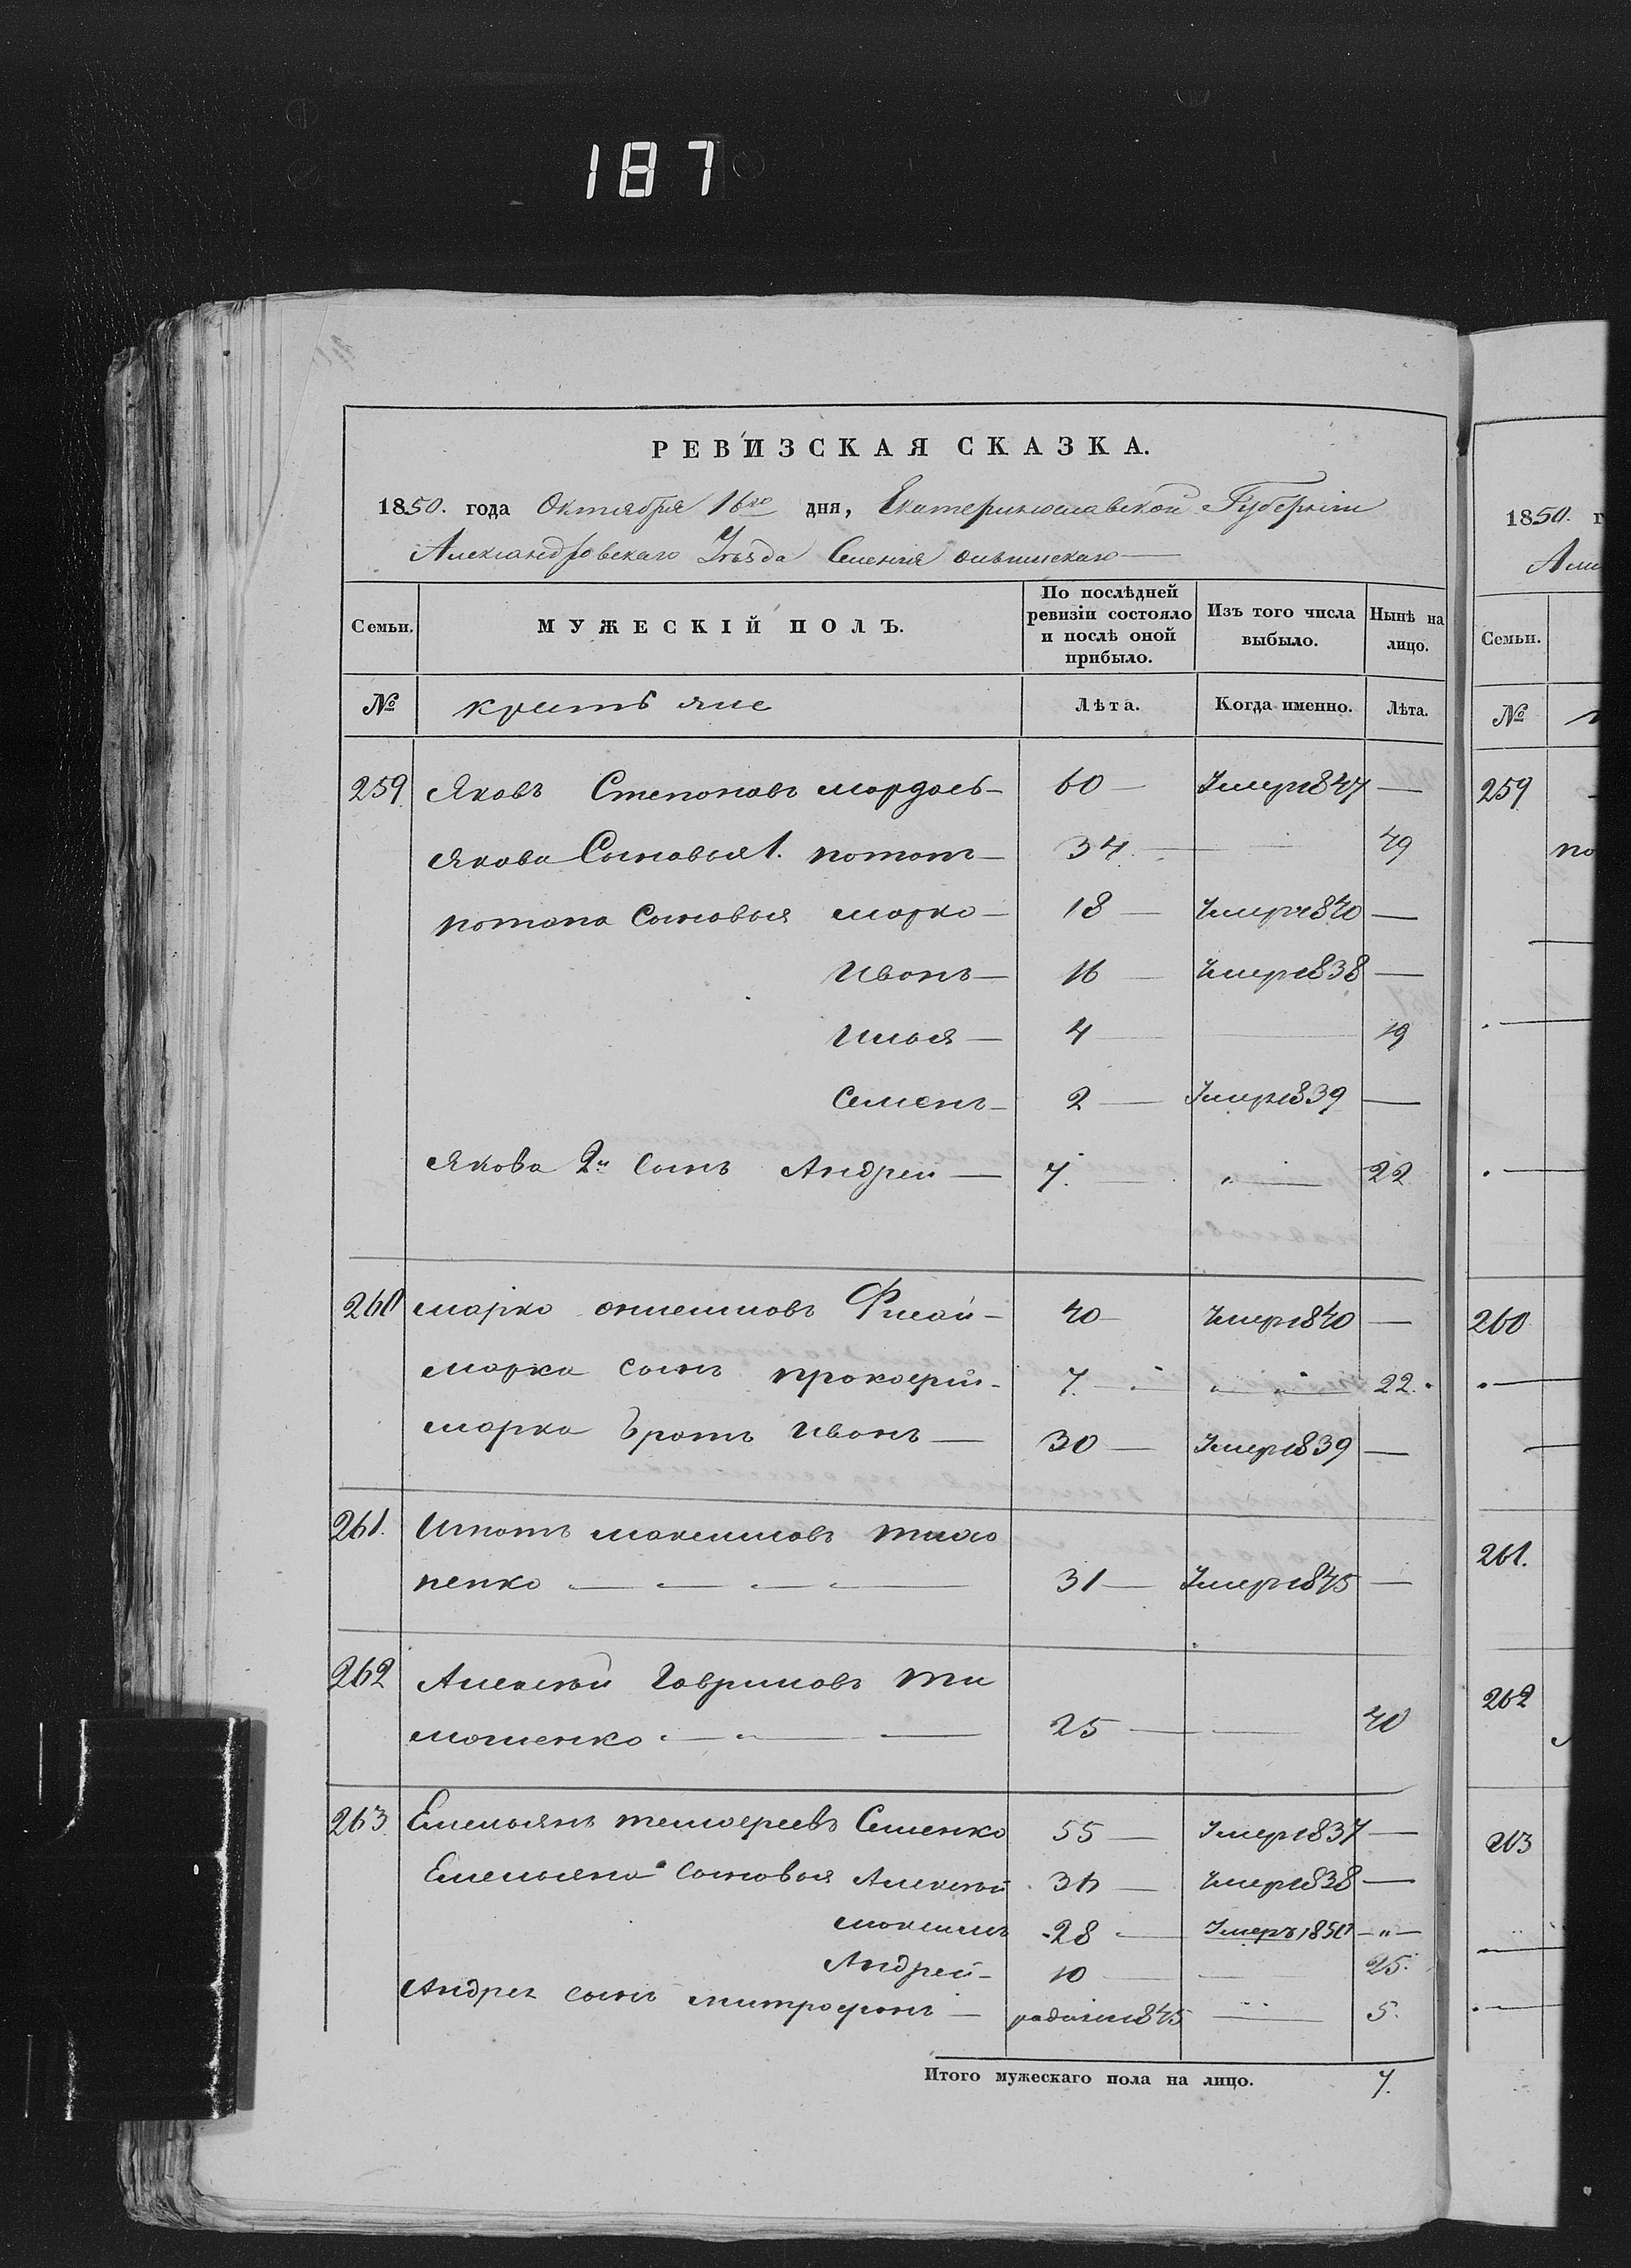 187
РЕВИЗСКАЯ СКАЗКА.
1850. года Октября 16го дня, Екатеринославской Губерніи
Александровскаго Уѣзда Селенія
Семьи. МУЖЕСКІЙ ПОЛЪ. По послѣдней ревизіи состояло и послѣ оной прибыло. Изъ того числа выбыло. Нынѣ на лицо.
№ крестьяне Лѣта. Когда именно. Лѣта.
259 Яковъ Степановъ 60 — Умеръ 1847 —
Якова Сыновья 1. потапъ — 34. — — 49
потапа Сыновья марко — 18 — Умеръ 1840 —
Иванъ — 16 — Умеръ 1838 —
Илья — 4 — — 19
Семенъ — 2 — Умеръ 1839 —
Якова 2й Сынъ Андрей — 7. — „ — 22
260 марко 40 — Умеръ 1840 —
марка сынъ прокофій — 7. — „ — 22.
марка братъ Иванъ — 30 — Умеръ 1839 —
261. Игнатъ максимовъ
ненко — — — — 31 — Умеръ 1845 —
262 Алексѣй Гавриловъ Ти
мошенко — — — 25 — — 40
263 Емельянъ тимофеевъ Семенко 55 — Умеръ 1837 —
Емельяна сыновья Алексѣй 36 — Умеръ 1838 —
максимъ 28 — Умеръ 1850 — „ —
Андрей — 10 — — 25.
Андрея сынъ митрофанъ — родился 1845 — 5.
Итого мужескаго пола на лицо. 7.
1850. г
Семьи.
№
259
по
260
261.
262
263